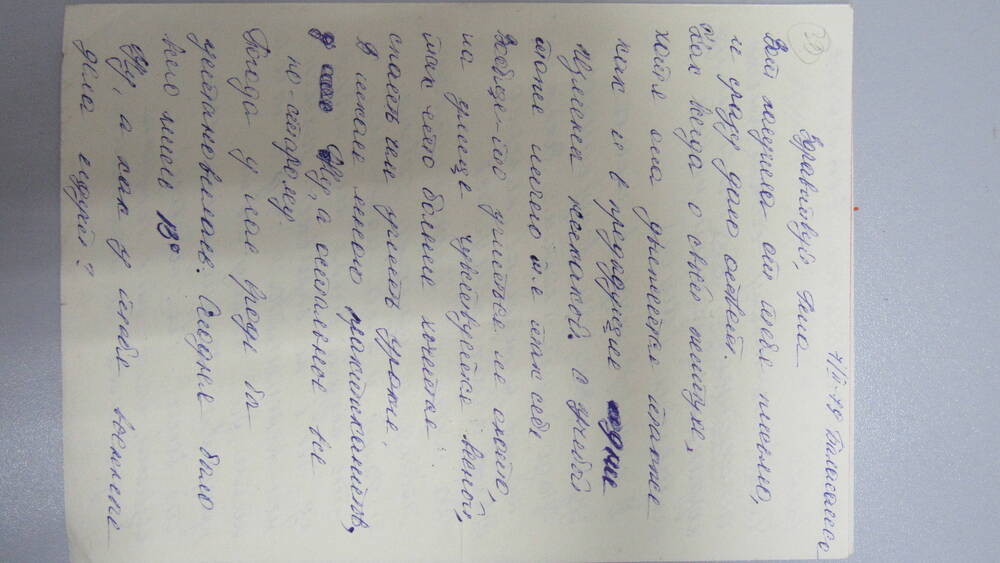 39
7/II-79 Балахаметьево
Здравствуй, Гена
Вот получила от тебя письмо,
и сразу даю ответ.
Как всегда о своей житухе,
хотя она движется также
как и в предыдущие дни
никакой. С учебой
тоже ничего т.е так себе
Вообще-то учиться не охото,
на улице чувствуется весной,
так что больше хочется
спать чем учить уроки.
В школе много практикантов,
Ну, а остальное все
по-старому.
Погода у нас вроде бы
установилась. Сегодня было
всего лишь 13°
Ну, а как у тебя военные
дела идут?